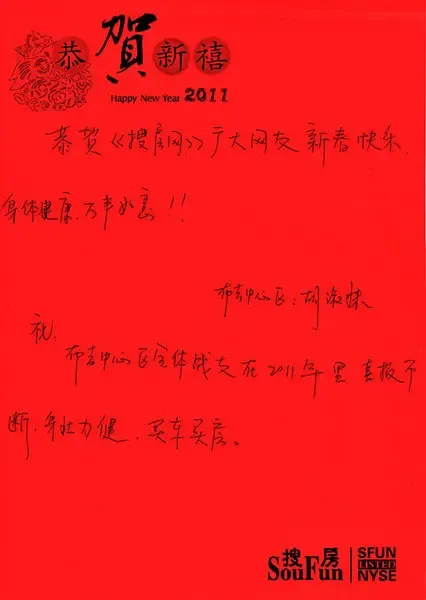 恭賀新禧
Happy New Year 2011
恭贺《搜房网》广大网友新春快乐,
身体健康,万事如意!!
布吉中心区:胡淑妹
祝:
布吉中心区全体战友在2011年里喜报不
断,身壮力健,买车买房。
搜房
SouFun
SFUN
LISTED
NYSE